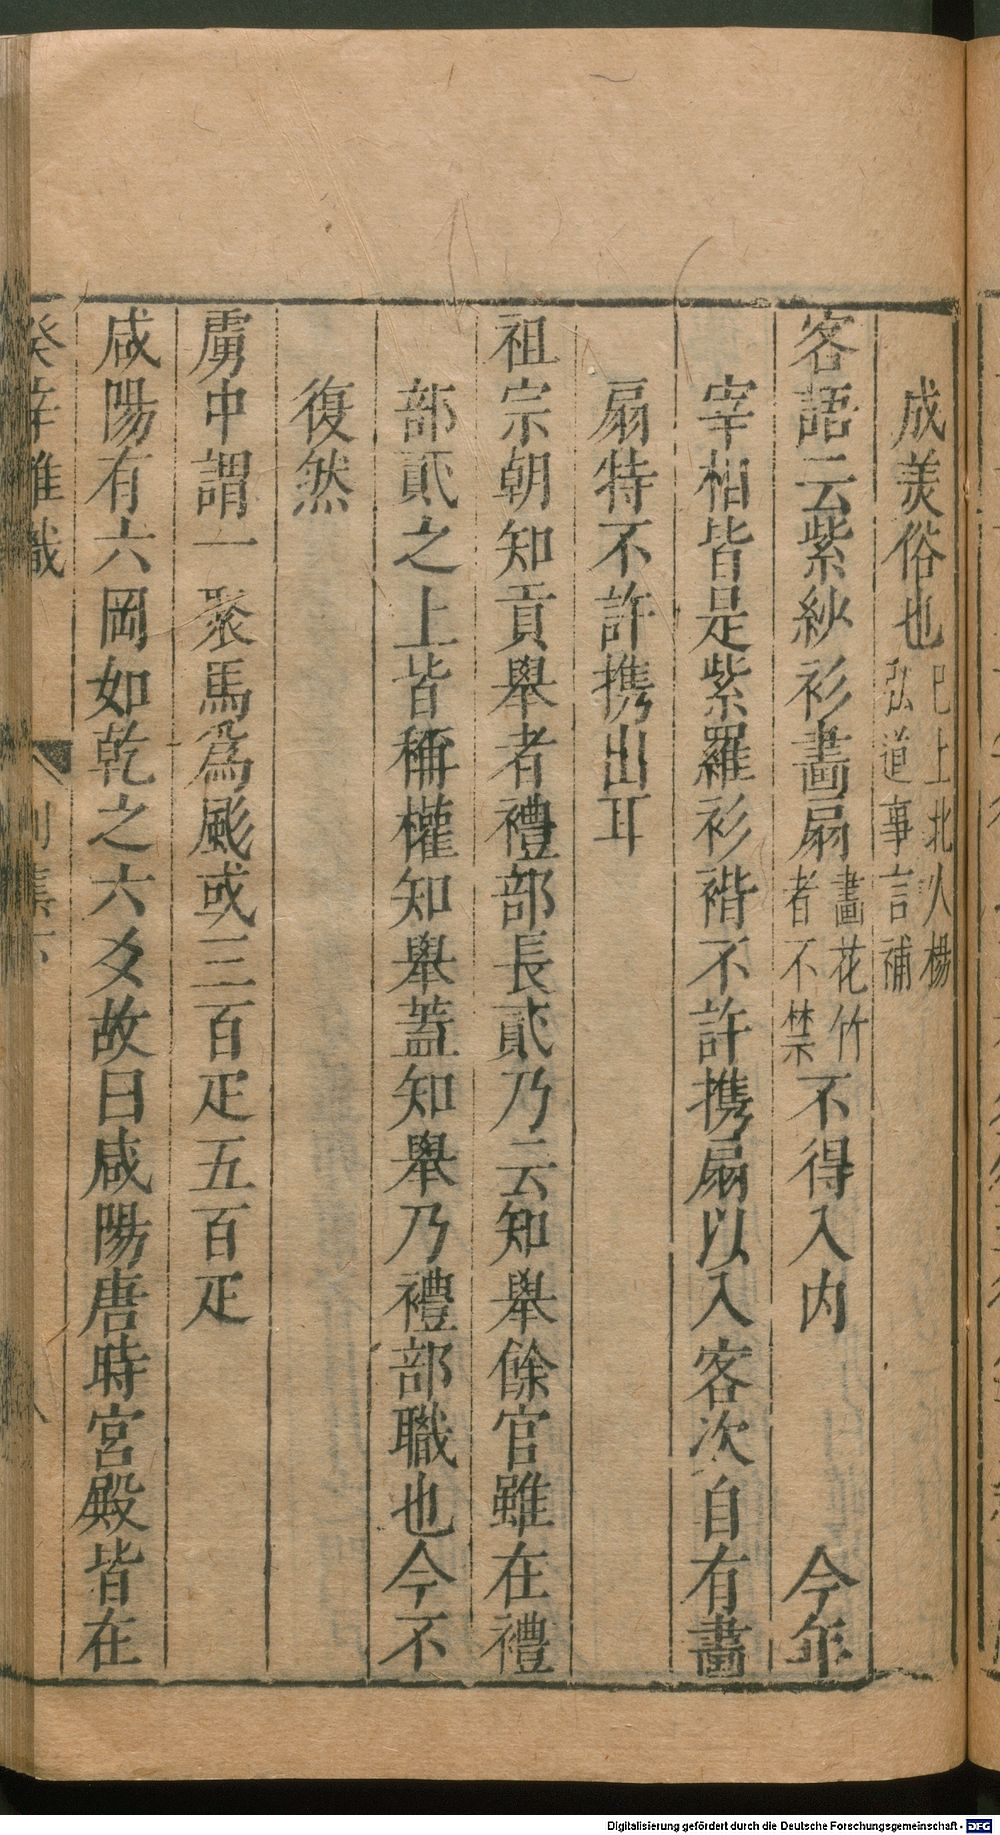 成羙俗也已上北人楊弘道事言補
客語云紫紗衫畵扇畵花竹者不禁不得入内　今年
宰相皆是紫羅衫褙不許携扇以入客次自有畵
扇特不許携出耳
祖宗朝知貢舉者禮部長貳乃云知舉餘官雖在禮
部貳之上皆稱權知舉蓋知舉乃禮部職也今不
復然
虜中謂一聚馬爲颩或三百疋五百疋
咸陽有六岡如乾之六爻故曰咸陽唐時宮殿皆在
癸辛雜識　別集下　八
Digitalisierung gefördert durch die Deutsche Forschungsgemeinschaft - DFG